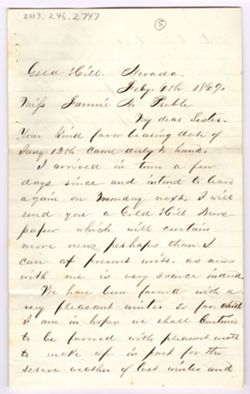 2113.246.2747
5
Gold Hill Nevada.
Feby. 6th 1869.
Miss Fannie A.
My dear Sister.
Your kind favor bearing date of
Jany 13th came duly to hand.
I arrived in town a few
days since and intend to leave
again on Monday next. I will
send you a Gold Hill News
paper which will contain
more news perhaps than I
can at present write. as news
with me is very scarce indeed.
We have been favored with a
very pleasant winter so far
I am in hopes we shall continue
to be favored with pleasant
to make up in part for the
severe weather of last winter and